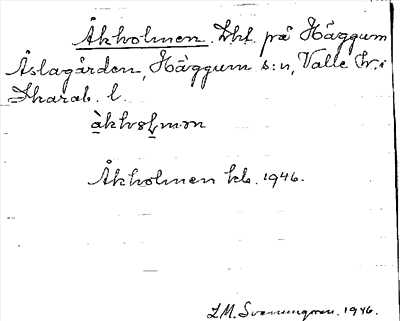 Åkholmen. Lht. på Häggum
Åslagården, Häggum s:n, Valle hr. i
Skarab. l.
àkhɔḷmən
Åkholmen kb. 1946.
L.M. Svenungsson. 1946.